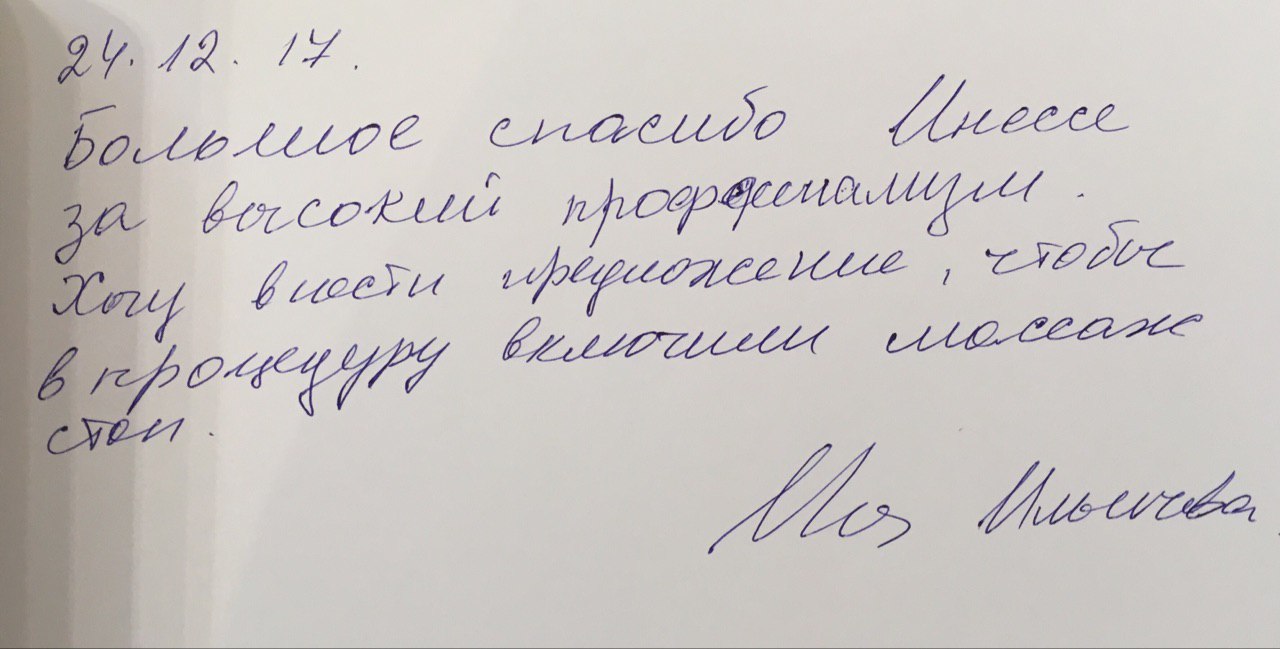 24.12.17.
Большое спасибо Инессе
за высокий
Хочу внести предложение, чтобы
в процедуру включили массаж
стоп.
Ильичева